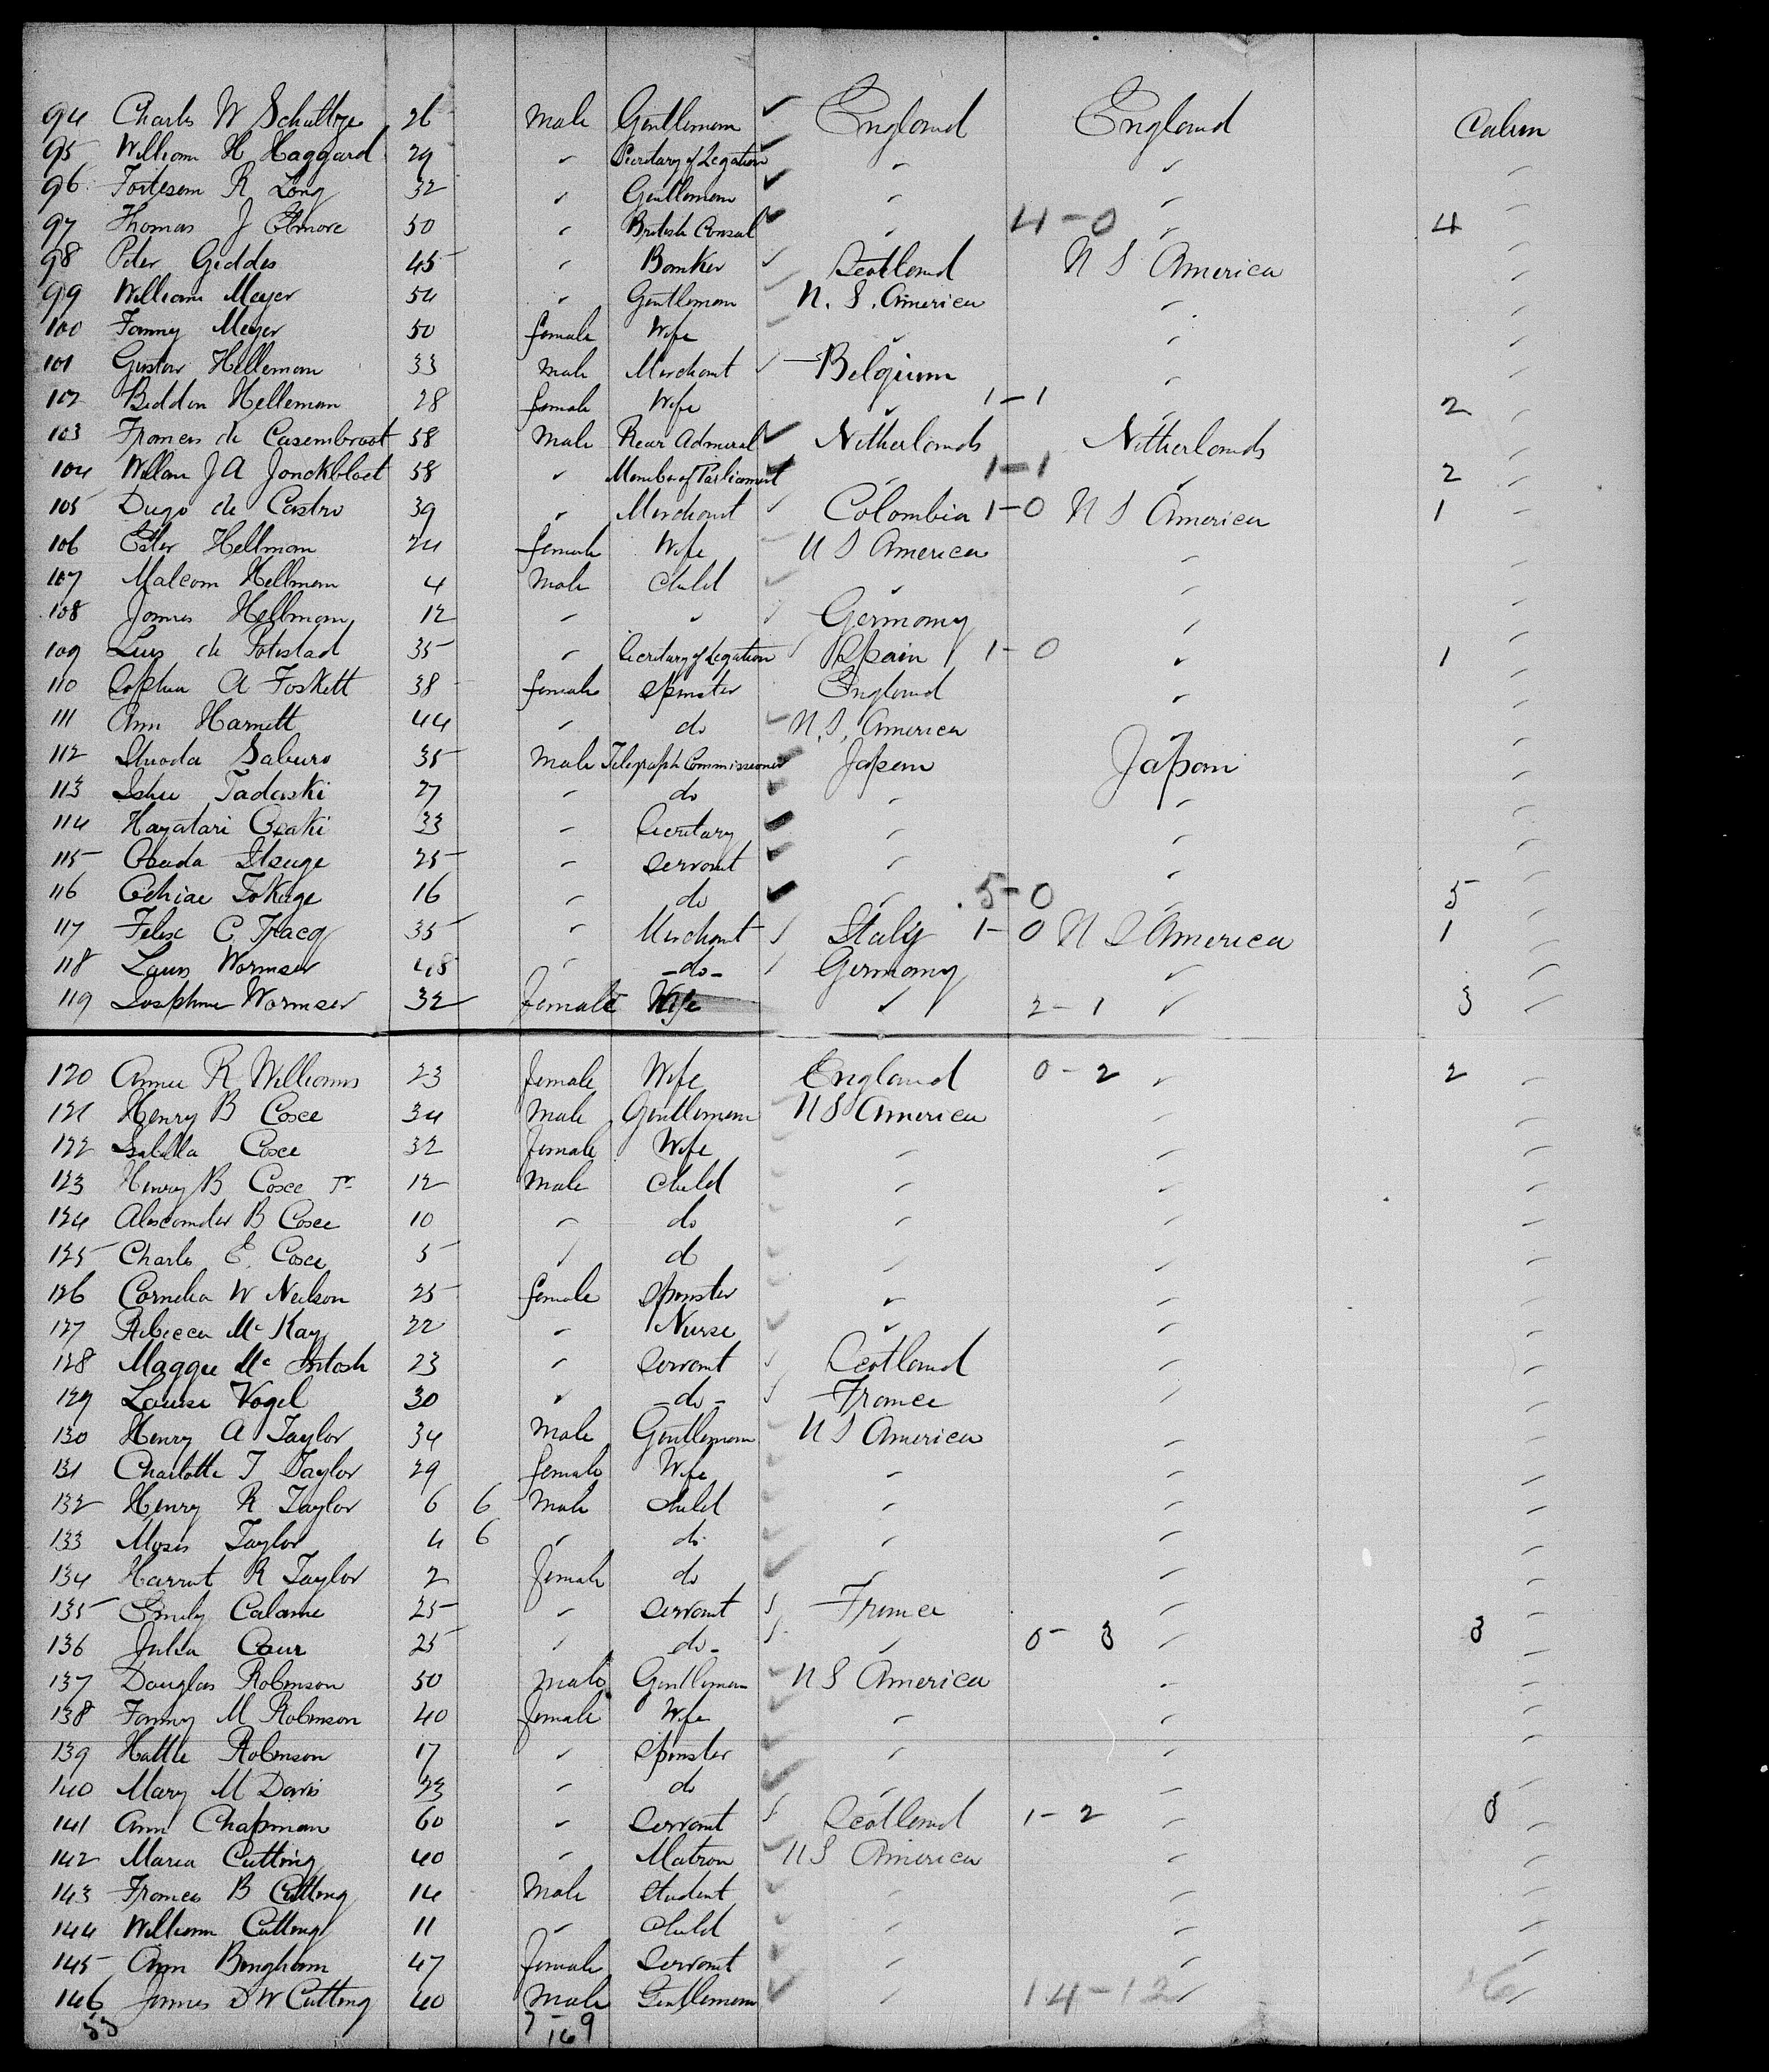 94 Charles W Schultze 26 Male Gentleman ✓ England England Cabin
95 William H Haggard 29 " Secretary of Legation ✓ " " "
96 R Long 32 " Gentleman ✓ " " "
97 Thomas J Elmore 50 " British Consul ✓ " 4-0 " 4
98 Peter Geddes 45 " Banker ✓ Scotland U S America "
99 William Meyer 54 " Gentleman ✓ U. S. America " "
100 Fanny Meyer 50 female Wife " " "
101 Gustav Helleman 33 Male Merchant ✓ Belgium " "
102 Helleman 28 female Wife " 1-1 " 2 "
103 Frances de Casembroot 58 Male Rear Admiral ✓ Netherlands Netherlands "
104 Willem J A Jonckbloet 58 " Member of Parliament ✓ " 1-1 " 2 "
105 Dugo de Castro 39 " Merchant ✓ Colombia 1-0 U S America 1 "
106 Ester Hellman 24 female Wife U S America " "
107 Malcom Hellman 4 Male Child ✓ " " "
108 James Hellman 12 " " ✓ Germany " "
109 Luis de Potestad 35 " Secretary of Legation ✓ Spain 1-0 " 1
110 Sophia A Foskett 38 female Spinster England " "
111 Ann Harnett 44 " do ✓ U. S. America "
112 Saburo 35 Male Telegraph Commissioner ✓ Japan Japan "
113 Ishii Tadaski 27 " do ✓ " " "
114 Hayatari Osaki 33 " Secretary ✓ " " "
115 Osada Itsuge 25 " Servant ✓ " " "
116 Tokuge 16 " do ✓ " 5-0 " 5 "
117 Felix C Tracq 35 " Merchant ✓ Italy 1-0 U S America 1 "
118 Louis Wormser 48 " -do- ✓ Germany " "
119 Josephine Wormser 32 female Wife " 2-1 " 3 "
120 Annie R Williams 23 female Wife England 0-2 " 2 "
121 Henry B Coxe 34 Male Gentleman ✓ U S America " "
122 Isabella Coxe 32 female Wife " " "
123 Henry B Coxe Jr 12 Male Child " " "
124 Alexander B Coxe 10 " do " " "
125 Charles E. Coxe 5 " do " " "
126 Cornelia W Neilson 25 female Spinster " " "
127 Rebecca Mc Kay 22 " Nurse ✓ " " "
128 Maggie Mc Intosh 23 " Servant ✓ Scotland " "
129 Louise Vogel 30 " -do- ✓ France " "
130 Henry A Taylor 34 Male Gentleman ✓ U S America " "
131 Charlotte T Taylor 29 female Wife ✓ " " "
132 Henry R Taylor 6 6 Male Child ✓ " " "
133 Moses Taylor 4 6 " do ✓ " " "
134 Harriet R Taylor 2 female do ✓ " " "
135 Emily Calame 25 " Servant ✓ France " "
136 Julia Cour 25 " do- ✓ " 0-3 " 3 "
137 Douglas Robinson 50 male Gentleman ✓ U S America " "
138 Fanny M Robinson 40 female Wife ✓ " " "
139 Hattie Robinson 17 " Spinster ✓ " " "
140 Mary M Davis 23 " do ✓ " "
141 Ann Chapman 60 " Servant ✓ Scotland 1-2 " 3 "
142 Maria Cutting 40 " Matron ✓ U S America " "
143 Frances B Cutting 14 Male Student ✓ " " "
144 William Cutting 11 " Child ✓ " " "
145 Ann Bingham 47 female Servant ✓ " " "
146 James D W Cutting 40 Male Gentleman ✓ " 14-12 " "
53